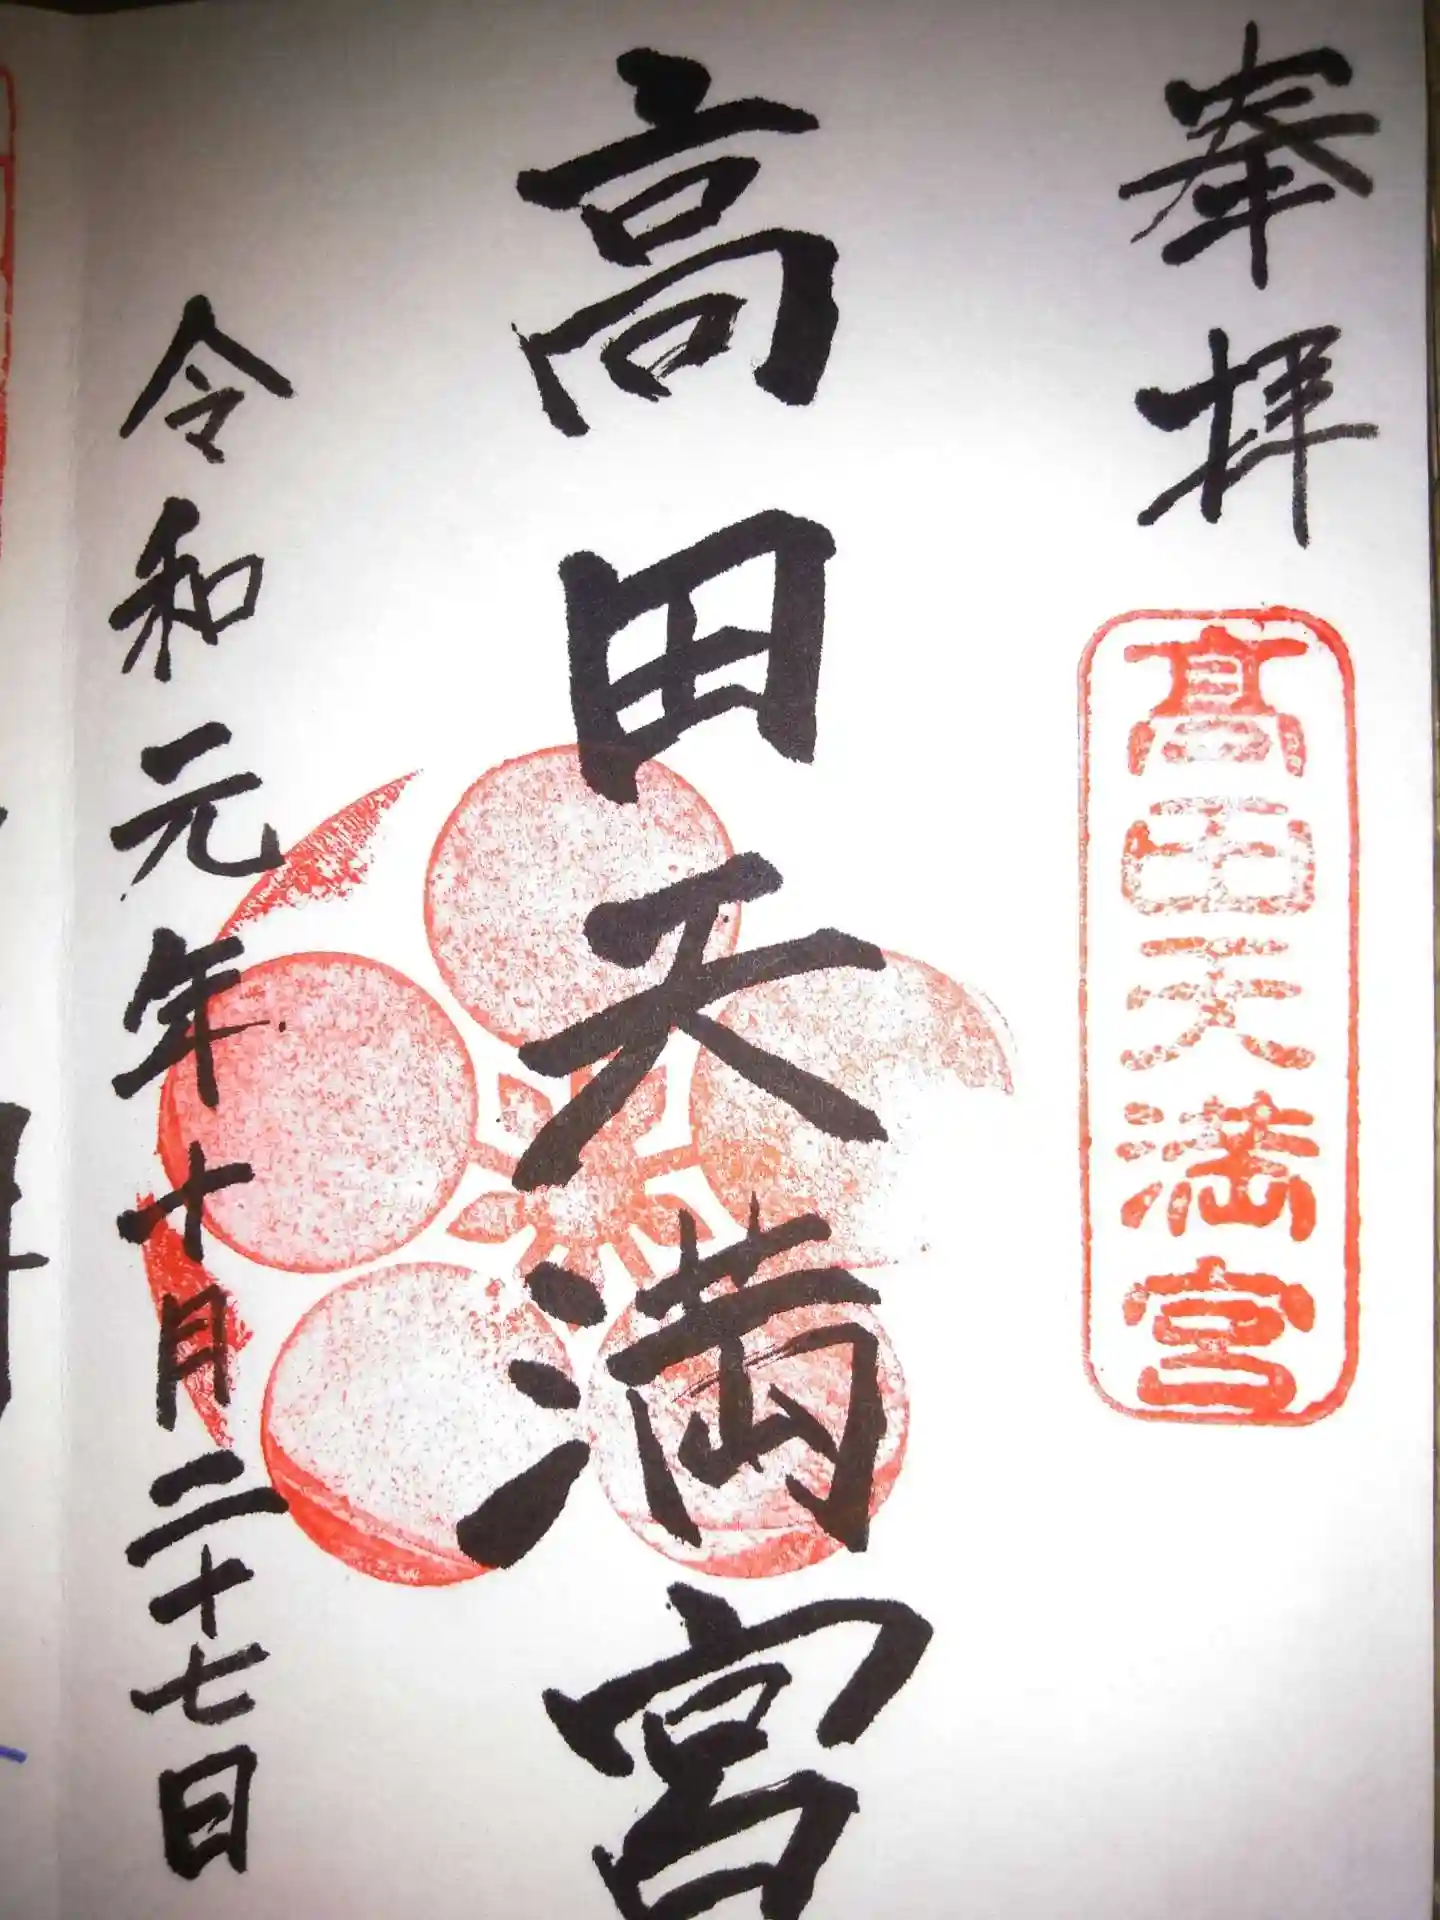 奉拝
髙田天満宮
高田天満宮
令和元年十月二十七日